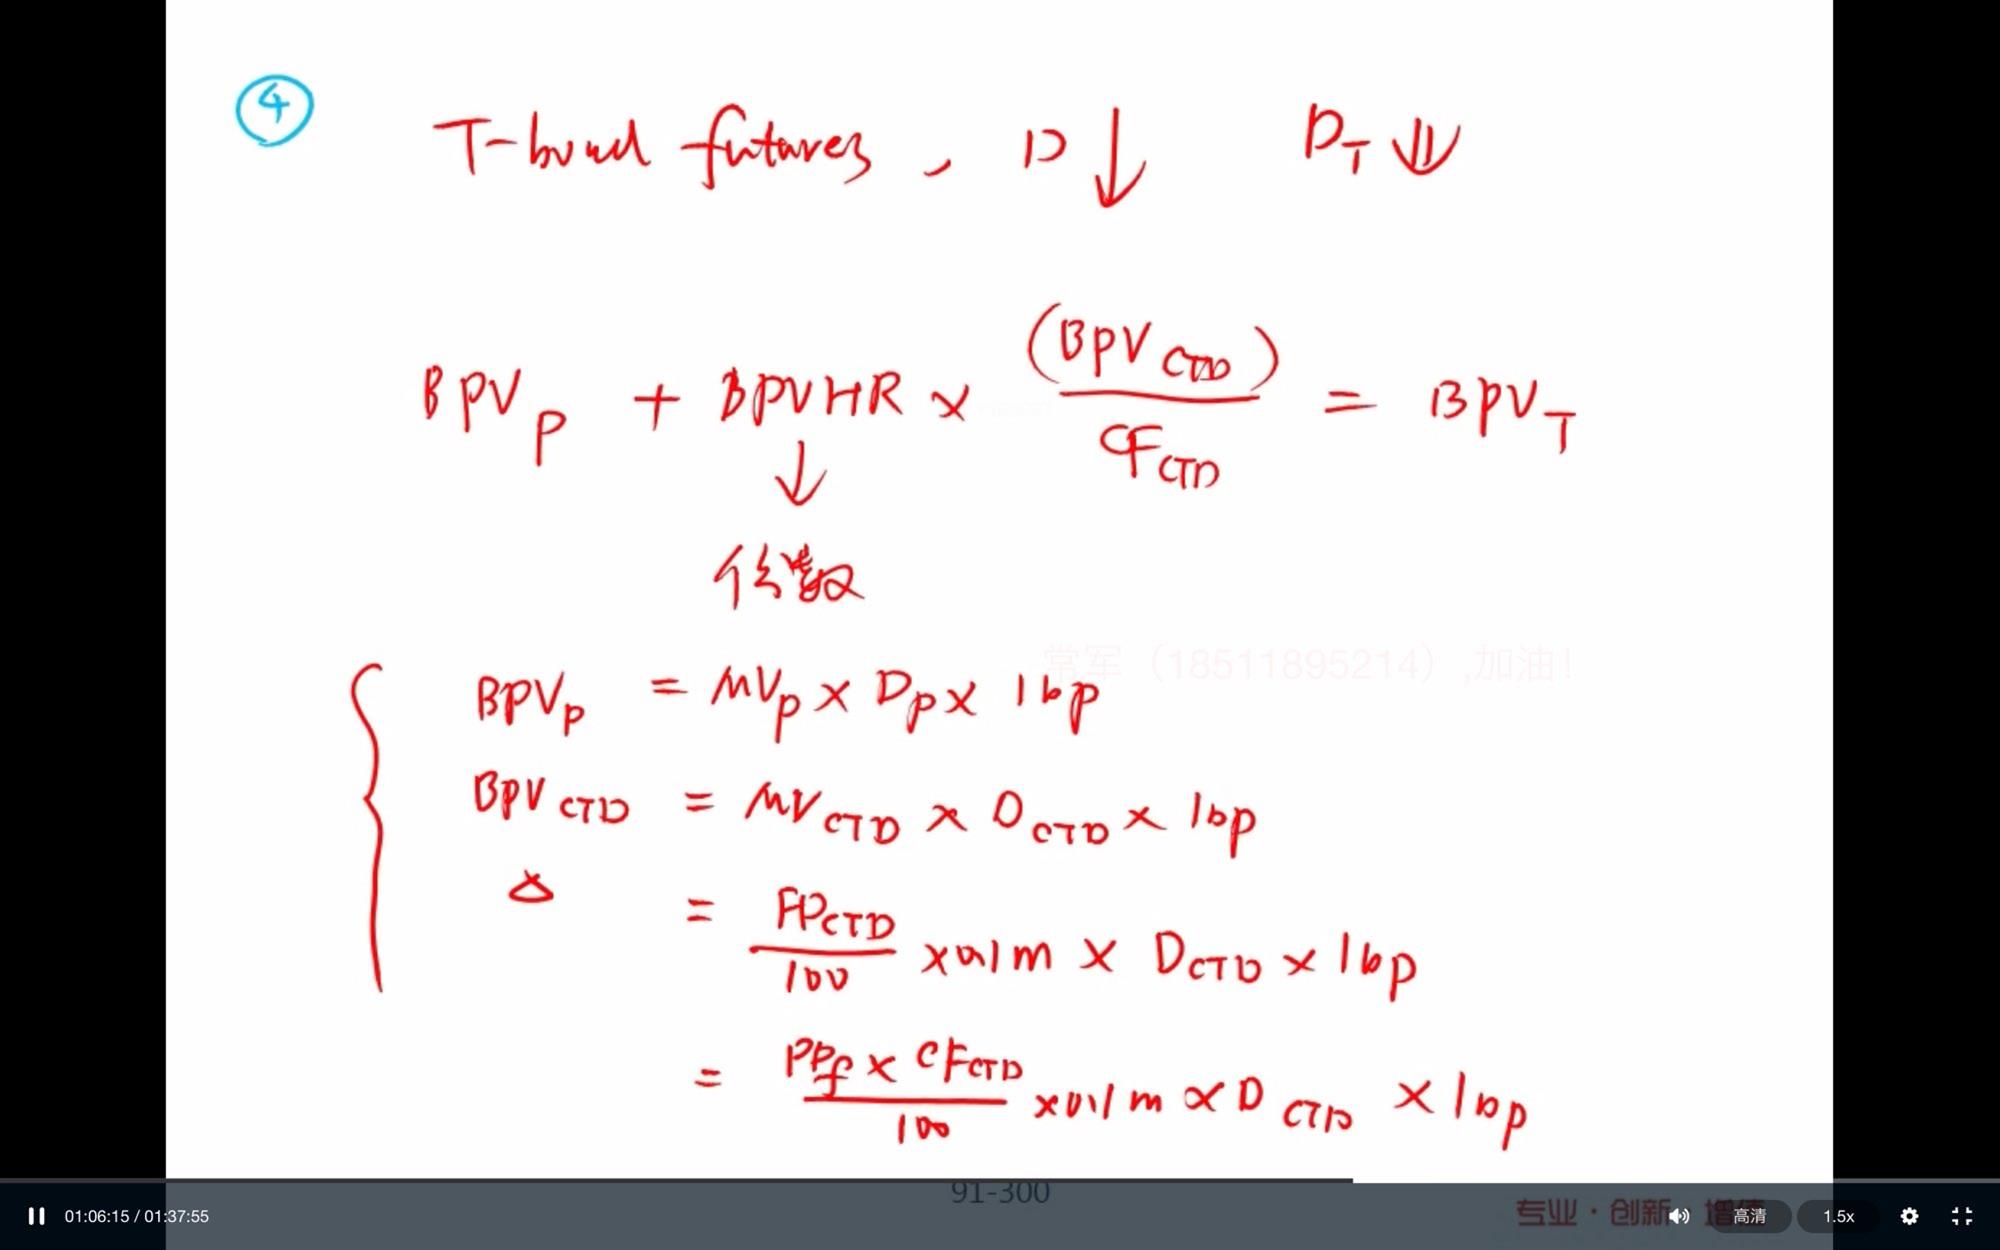 ④ T-bond futures, D↓ D_T ⇓
BPV_P + BPVHR × (BPV_CTD) / CF_CTD = BPV_T
↓
份数
常军（18511895214）,加油！
BPV_P = MV_P × D_P × 1bp
BPV_CTD = MV_CTD × D_CTD × 1bp
△ = FP_CTD / 100 × 0.1m × D_CTD × 1bp
= PP_f × CF_CTD / 100 × 0.1m × D_CTD × 1bp
91-300
专业·创新·增值
01:06:15 / 01:37:55 高清 1.5x